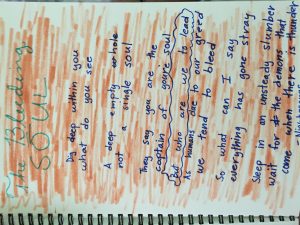 The Bleeding
SOUL
Dig deep within you
what do you see
A deep empty hole
not a single soul
They say you are the
captain of youre soul
But who are we to lead
As humans due to our greed
we tend to bleed
So what can I say
everything has gone stray
Sleep in an unsteady slumber
wait for the demons that
come when there is thunder